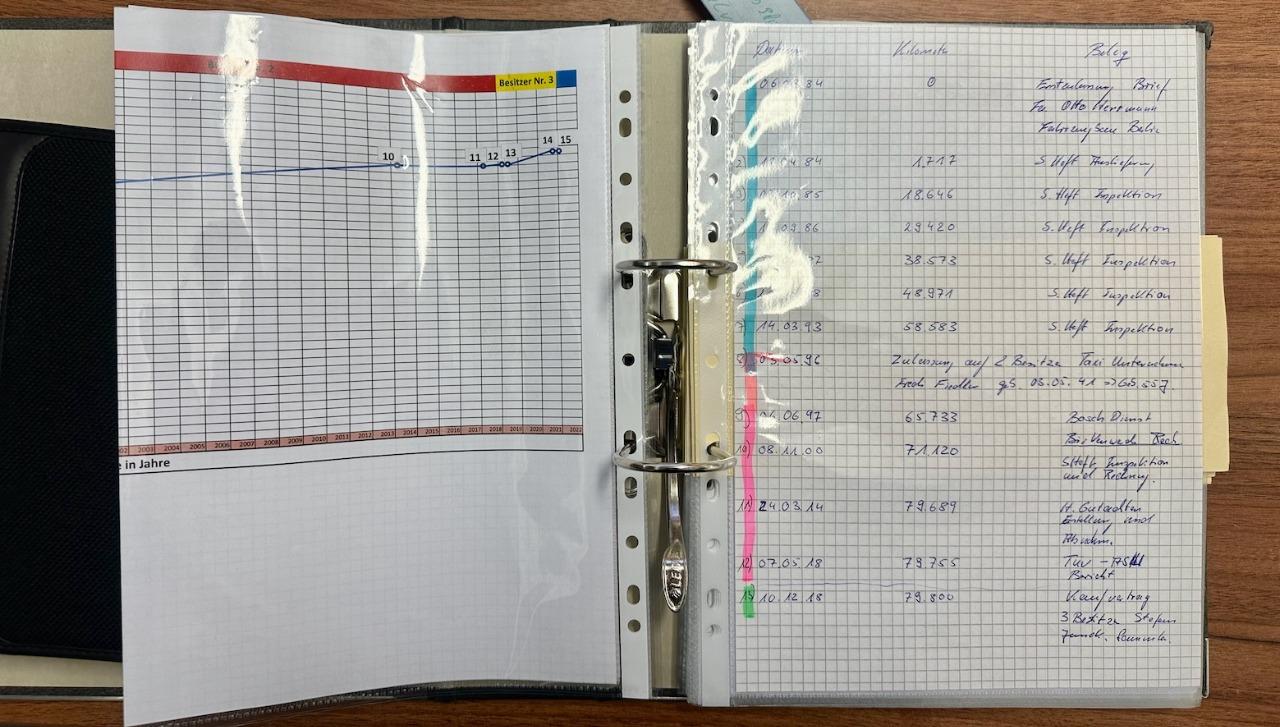 Besitzer Nr. 3
14 15
10
11 12 13
2003 2004 2005 2006 2007 2008 2009 2010 2011 2012 2013 2014 2015 2016 2017 2018 2019 2020 2021 2022
e in Jahre
Datum Kilometer Beleg
84 0 Brief
Fa Otto
Berlin
84 1.717 S. Heft Auslieferung
85 18.646 S. Heft Inspektion
86 29420 S. Heft Inspektion
38.573 S. Heft Inspektion
8 48.971 S. Heft Inspektion
7) 14.03.93 58.583 S. Heft Inspektion
8) 03.05.96 Zulassung auf 2 Besitzer Taxi Unternehmen
Fiedler geb. 65.557
9) 06.97 65.733 Bosch Dienst
10) 08.11.00 71.120
SHeft Inspektion
und Rechnung.
11) 24.03.14 79.689 H. Gutachten
Erstellung und
12) 07.05.18 79.755 Tüv
Bericht
13) 10.12.18 79.800 Kaufvertrag
3 Besitzer Stefan